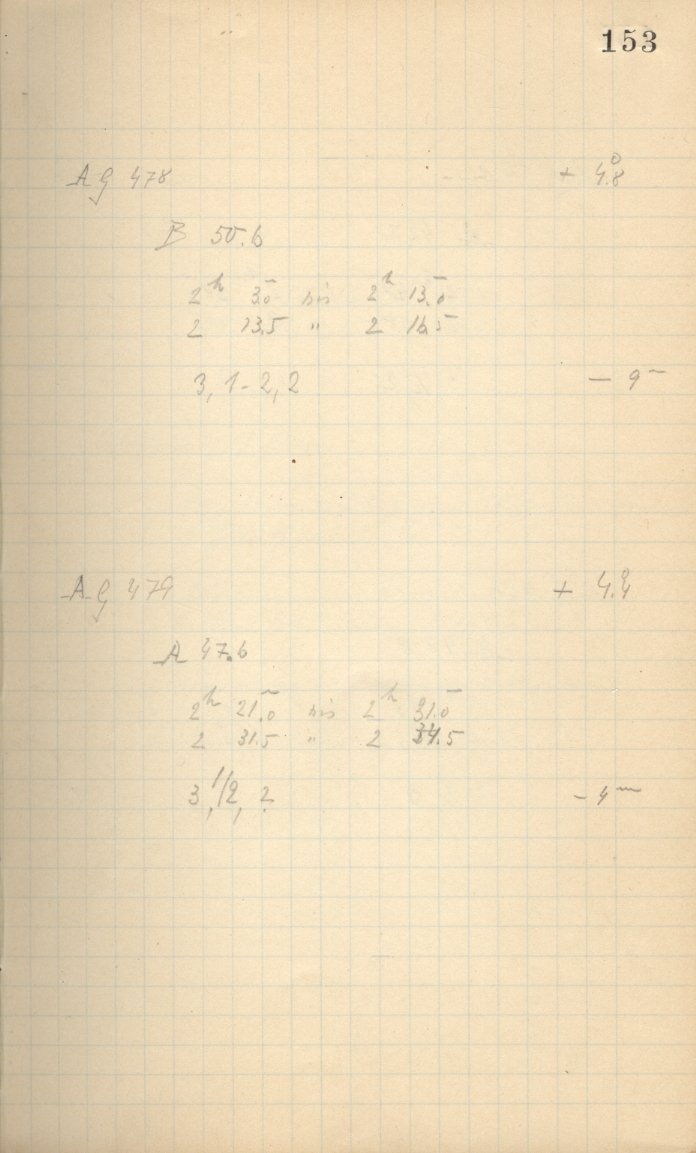 153
AG 478 + 4.°8
B 50.6
2ʰ 3.ᵐ0 bis 2ʰ 13.ᵐ0
2 13.5 " 2 16.5
3, 1-2, 2 — 9ᵐ
AG 479 + 4.°4
A 47.6
2ʰ 21.ᵐ0 bis 2ʰ 31.ᵐ0
2 31.5 " 2 34.5
3, 1/2, 2 - 4ᵐ